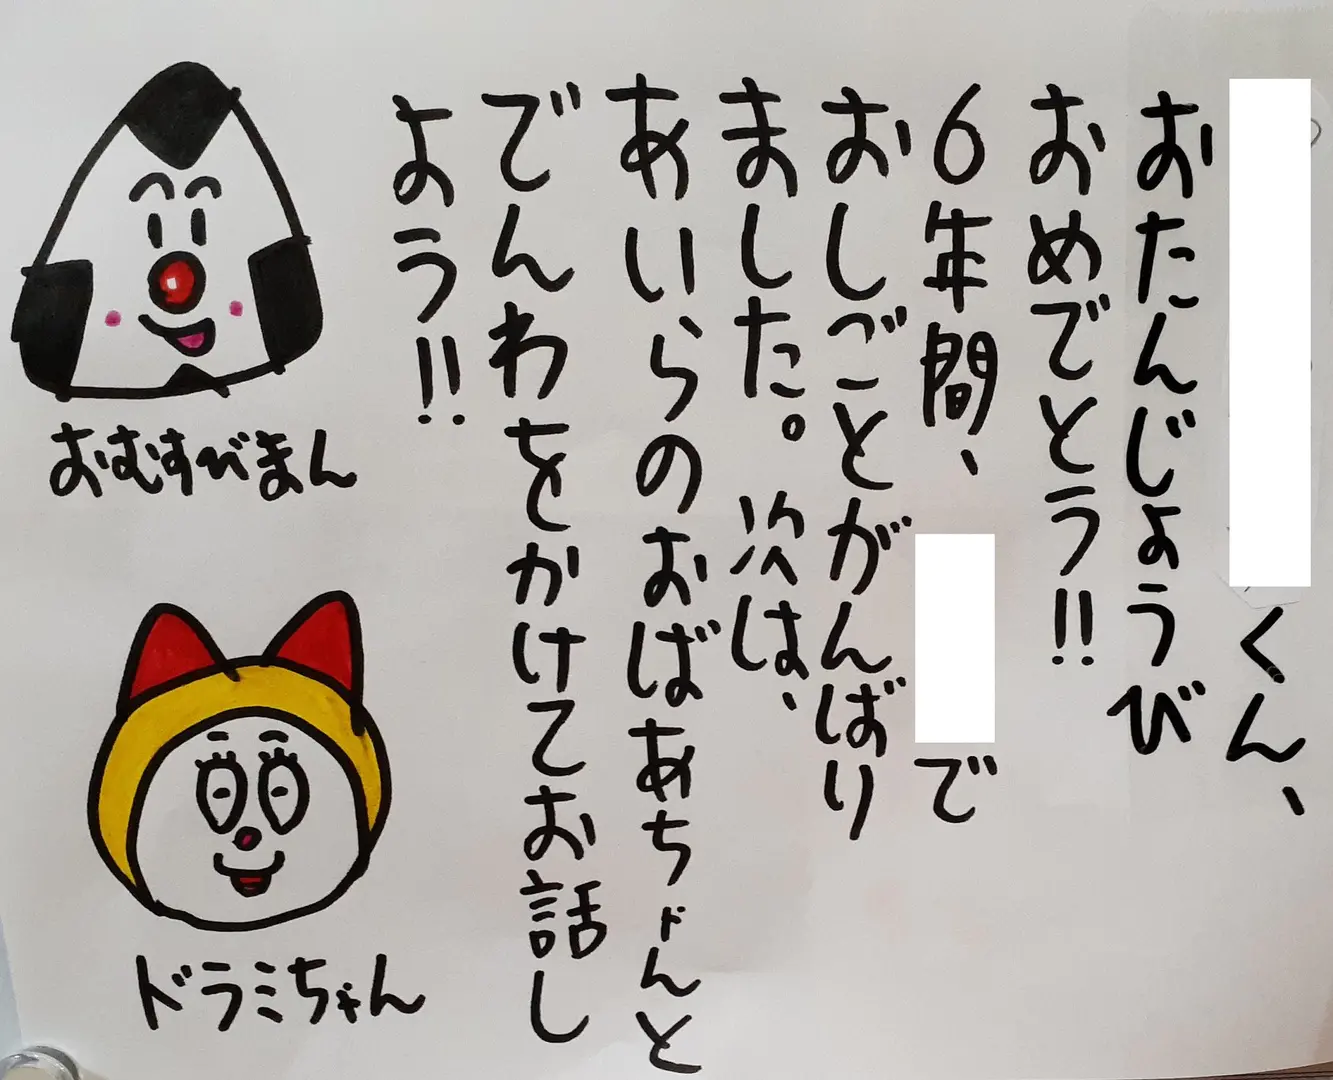 くん、
おたんじょうび
おめでとう!!
6年間、
で
おしごとがんばり
ました。次は、
あいらのおばあちゃんと
でんわをかけてお話し
よう!!
おむすびまん
ドラミちゃん